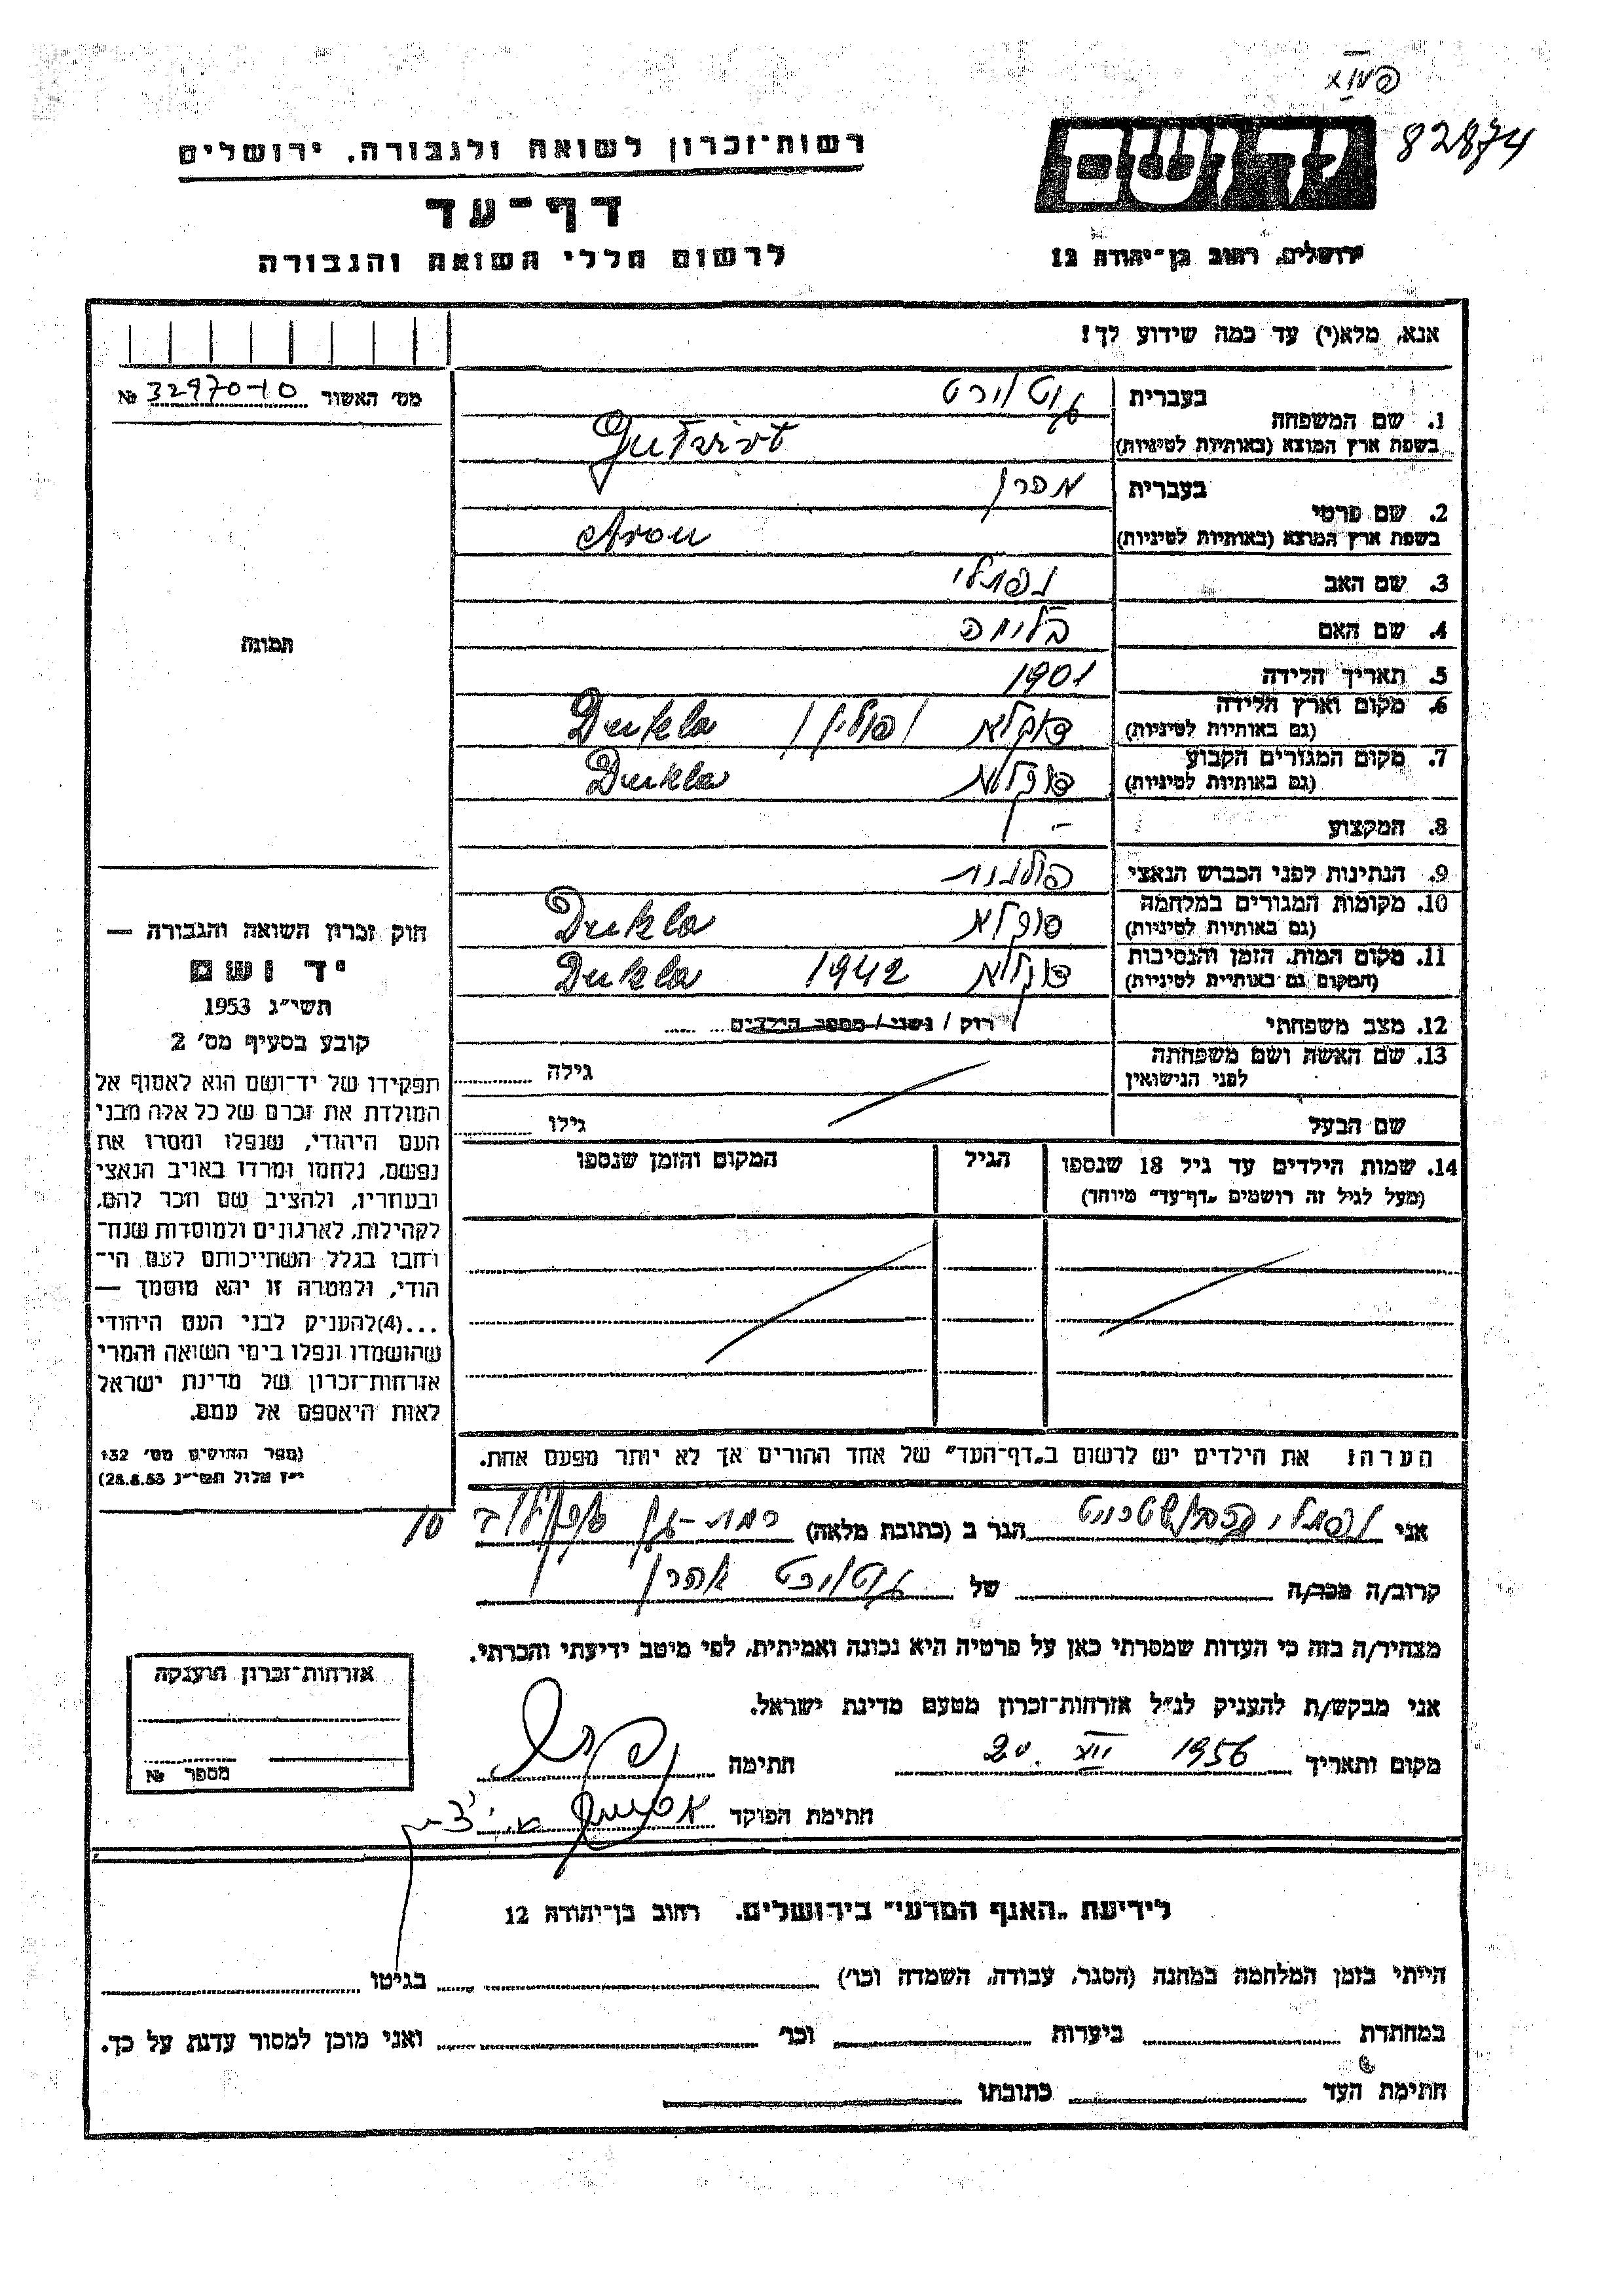 82874
רשות־זכרון לשואה ולגבורה, ירושלים
דף־עד
לרשום חללי השואה והגבורה
ידושם
ירושלים, רחוב בן־יהודה 12
אנא, מלא(י) עד כמה שידוע לך!
מס' האשור № 32970-10
1. שם המשפחה בעברית גוטוירט
בשפת ארץ המוצא (באותיות לטיניות) Gutwirt
2. שם פרטי בעברית אהרן
בשפת ארץ המוצא (באותיות לטיניות) Aron
3. שם האב נפתלי
4. שם האם בלימה
5. תאריך הלידה 1901
6. מקום וארץ הלידה
(גם באותיות לטיניות) דוקלא /פולין/ Dukla
7. מקום המגורים הקבוע
(גם באותיות לטיניות) דוקלא Dukla
8. המקצוע -
9. הנתינות לפני הכבוש הנאצי פולנית
10. מקומות המגורים במלחמה
(גם באותיות לטיניות) דוקלא Dukla
11. מקום המות, הזמן והנסיבות
(המקום גם באותיית לטיניות) דוקלא 1942 Dukla
12. מצב משפחתי רוק / נשוי / מספר הילדים
13. שם האשה ושם משפחתה
לפני הנישואין גילה
שם הבעל גילו
14. שמות הילדים עד גיל 18 שנספו הגיל המקום והזמן שנספו
(מעל לגיל זה רושמים „דף־עד" מיוחד)
הערה: את הילדים יש לרשום ב„דף־העד" של אחד ההורים אך לא יותר מפעם אחת.
תמונה
חוק זכרון השואה והגבורה —
יד ושם
תשי"ג 1953
קובע בסעיף מס' 2
תפקידו של יד־ושם הוא לאסוף אל
המולדת את זכרם של כל אלה מבני
העם היהודי, שנפלו ומסרו את
נפשם, נלחמו ומרדו באויב הנאצי
ובעוזריו, ולהציב שם וזכר להם,
לקהילות, לארגונים ולמוסדות שנח־
רחבו בגלל השתייכותם לעם הי־
הודי, ולמטרה זו יהא מוסמך —
...(4)להעניק לבני העם היהודי
שהושמדו ונפלו בימי השואה והמרי
אזרחות־זכרון של מדינת ישראל
לאות היאספם אל עמם.
(ספר החוקים מס' 132
י"ז אלול תשי"ג 28.8.53)
אני נפתלי הגר ב (כתובת מלאה) רמת-גן 10
קרוב/ה מכר/ה של גוטוירט אהרן
מצהיר/ה בזה כי העדות שמסרתי כאן על פרטיה היא נכונה ואמיתית, לפי מיטב ידיעתי והכרתי.
אני מבקש/ת להעניק לנ"ל אזרחות־זכרון מטעם מדינת ישראל.
מקום ותאריך 20. XII 1956 חתימה
חתימת הפוקד
אזרחות־זכרון הוענקה
מספר №
לידיעת „האגף המדעי" בירושלים, רחוב בן־יהודה 12
הייתי בזמן המלחמה במחנה (הסגר, עבודה, השמדה וכו') בגיטו
במחתרת ביערות וכו' ואני מוכן למסור עדות על כך.
חתימת העד כתובתו